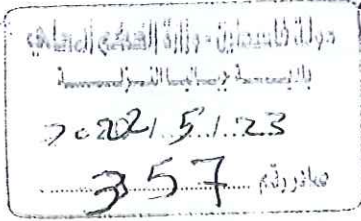 دولة فلسطين - وزارة الحكم المحلي
2022/5/23
صادر رقم 357